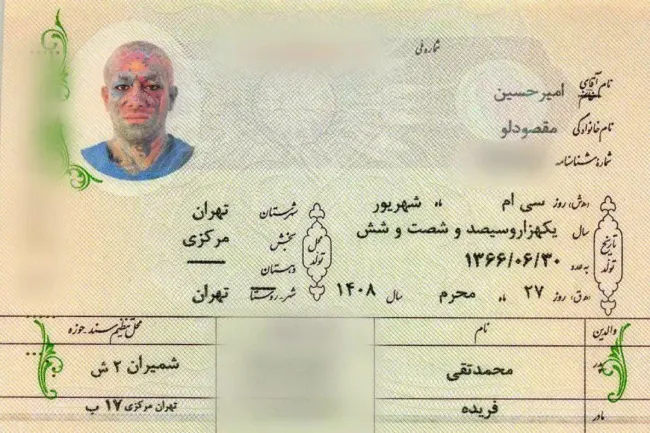 شماره ملی
نام آقای خانم امیرحسین
نام خانوادگی مقصودلو
شماره شناسنامه
تاریخ تولد
(ه‍.ش) روز سی ام ماه شهریور
سال یکهزاروسیصد و شصت و شش
به عدد ۱۳۶۶/۰۶/۳۰
(ه‍.ق) روز ۲۷ ماه محرم سال ۱۴۰۸
محل تولد
شهرستان تهران
بخش مرکزی
دهستان ــــ
شهر، روستا تهران
والدین نام محل تنظیم سند، حوزه
پدر محمدتقی شمیران ۲ ش
مادر فریده تهران مرکزی ۱۷ ب